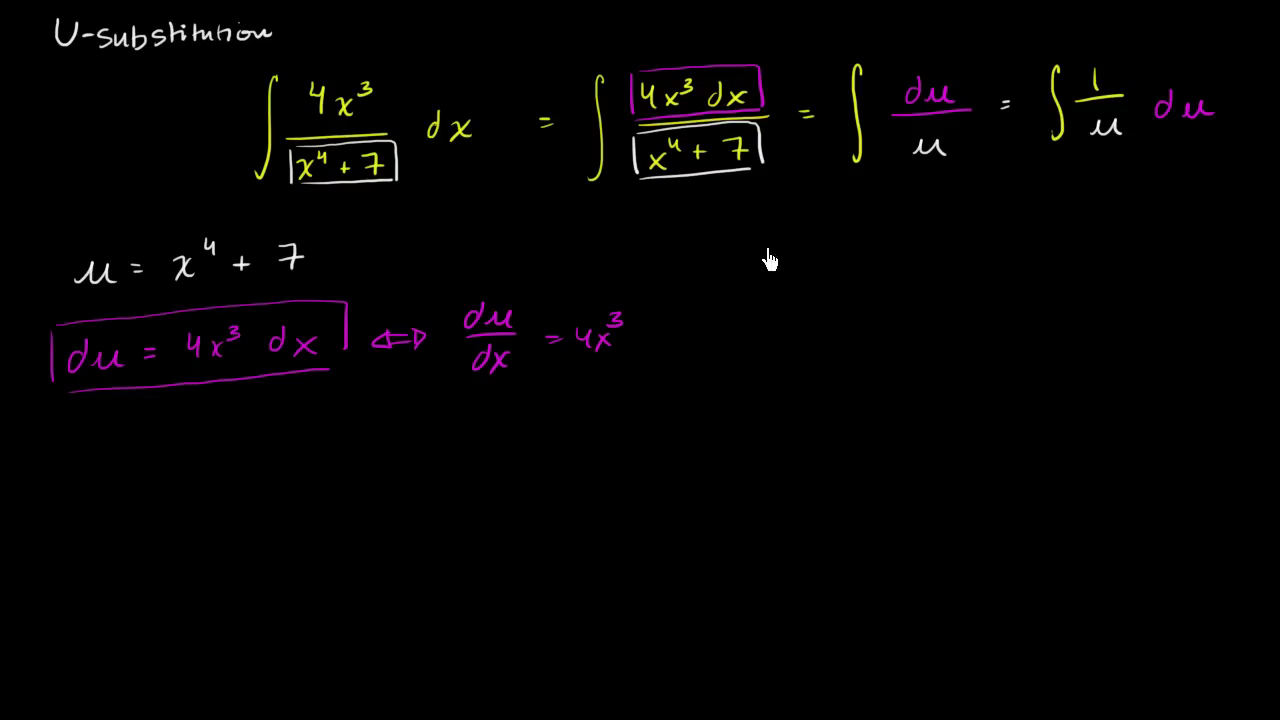 U-substitution
∫ 4x³/(x⁴ + 7) dx = ∫ 4x³ dx/(x⁴ + 7) = ∫ du/u = ∫ 1/u du
u = x⁴ + 7
du = 4x³ dx ⇔ du/dx = 4x³